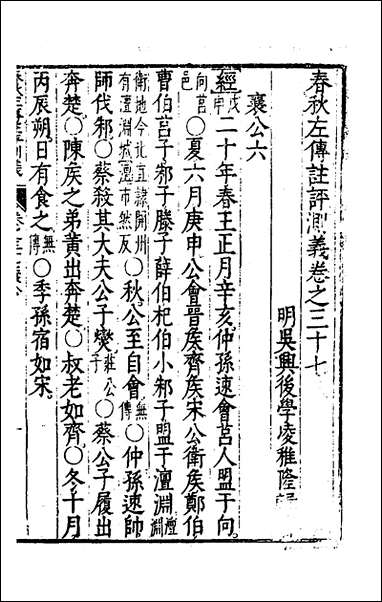 春秋左傳註評測義卷之三十七
明吳興後學凌稚隆
襄公六
經戊申二十年春王正月辛亥仲孫速會莒人盟于向
向莒邑○夏六月庚申公會晉矦齊矦宋公衛矦鄭伯
曹伯莒子邾子滕子薛伯杞伯小邾子盟于澶淵澶淵
衛地今北直隸開州有澶淵城澶市然反○秋公至自會無傳○仲孫速帥
師伐邾○蔡殺其大夫公子燮莊公子○蔡公子履出
奔楚○陳矦之弟黃出奔楚○叔老如齊○冬十月
丙辰朔日有食之無傳○季孫宿如宋